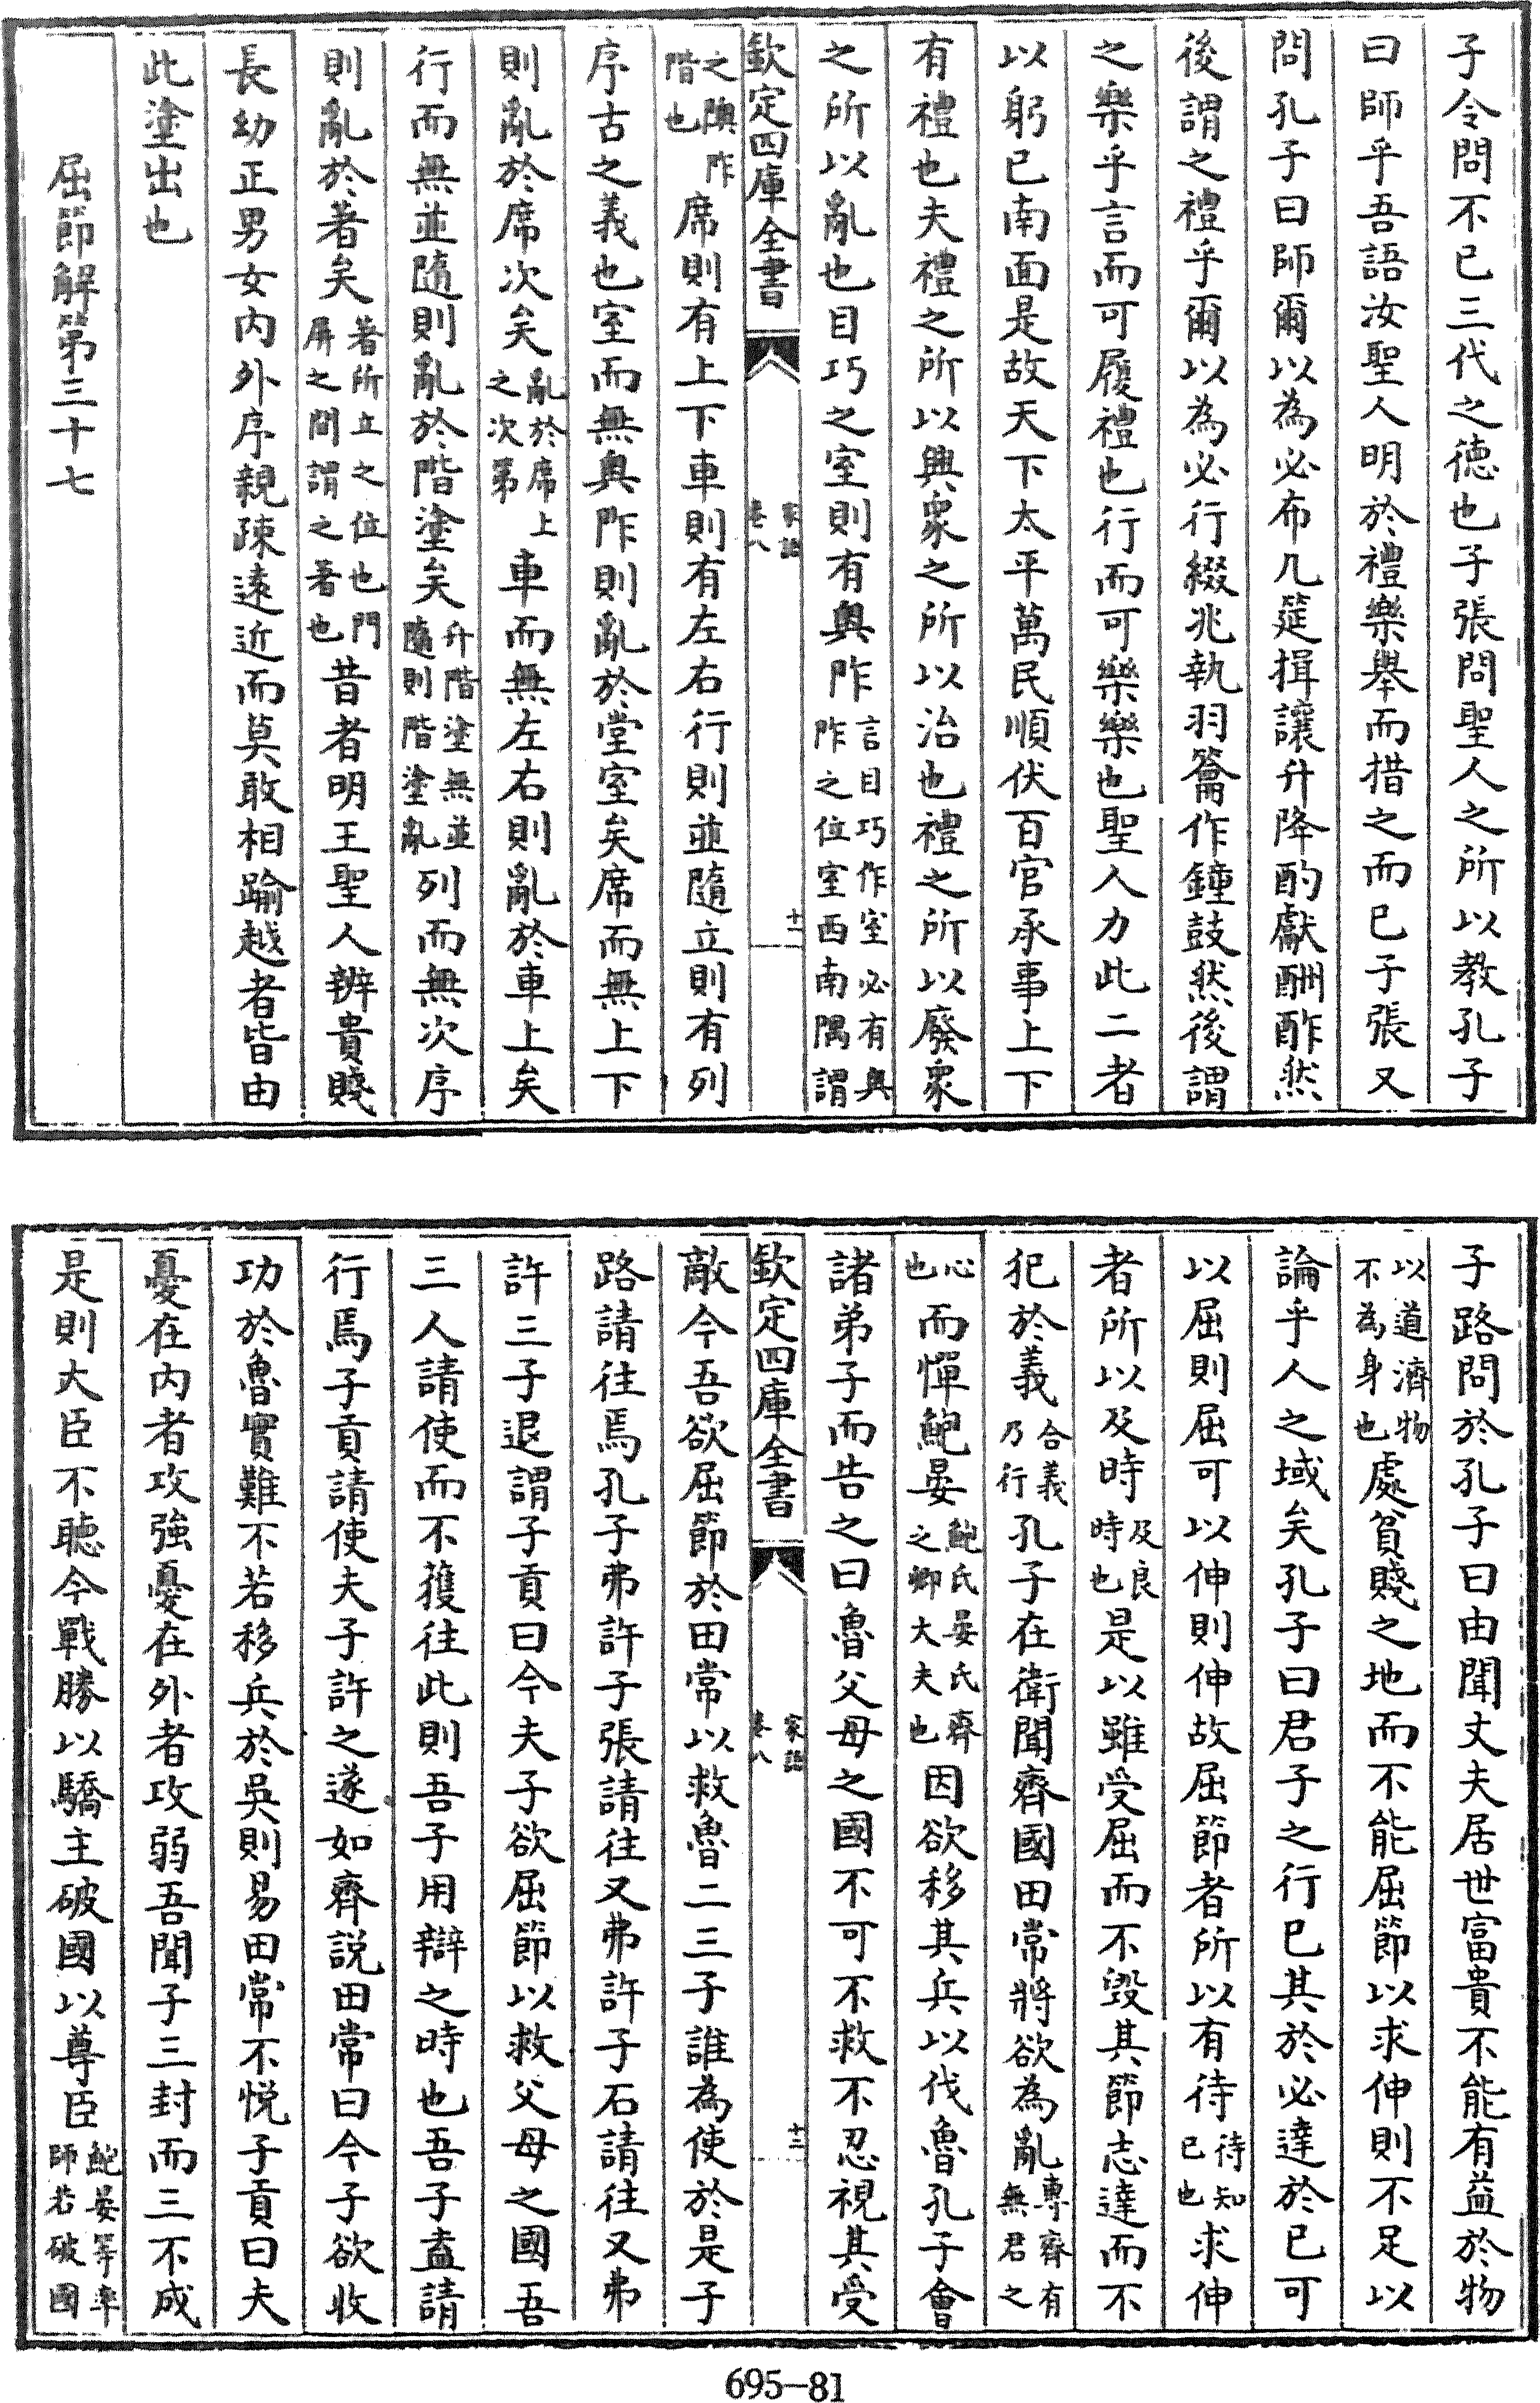 子令問不已三代之徳也子張問聖人之所以教孔子
曰師乎吾語汝聖人明於禮樂舉而措之而已子張又
問孔子曰師爾以為必布几筵揖讓升降酌獻酬酢然
後謂之禮乎爾以為必行綴兆執羽籥作鐘鼓然後謂
之樂乎言而可履禮也行而可樂樂也聖人力此二者
以躬已南面是故天下太平萬民順伏百官承事上下
有禮也夫禮之所以興衆之所以治也禮之所以廢衆
之所以亂也目巧之室則有奥阼言目巧作室必有奥阼之位室西南隅謂
欽定四庫全書 家語卷八 十二
之隩阼階也席則有上下車則有左右行則並隨立則有列
序古之義也室而無奥阼則亂於堂室矣席而無上下
則亂於席次矣亂於席上之次第車而無左右則亂於車上矣
行而無並隨則亂於階塗矣升階塗無並隨則階塗亂列而無次序
則亂於著矣著所立之位也門屏之間謂之著也昔者明王聖人辨貴賤
長幼正男女内外序親疎遠近而莫敢相踰越者皆由
此塗出也
屈節解第三十七
子路問於孔子曰由聞丈夫居世富貴不能有益於物
以道濟物不為身也處貧賤之地而不能屈節以求伸則不足以
論乎人之域矣孔子曰君子之行已其於必達於已可
以屈則屈可以伸則伸故屈節者所以有待待知已也求伸
者所以及時及良時也是以雖受屈而不毀其節志達而不
犯於義合義乃行孔子在衛聞齊國田常將欲為亂専齊有無君之
心也而憚鮑晏鮑氏晏氏齊之卿大夫也因欲移其兵以伐魯孔子會
諸弟子而告之曰魯父母之國不可不救不忍視其受
欽定四庫全書 家語卷八 十三
敵今吾欲屈節於田常以救魯二三子誰為使於是子
路請往焉孔子弗許子張請往又弗許子石請往又弗
許三子退謂子貢曰今夫子欲屈節以救父母之國吾
三人請使而不獲往此則吾子用辯之時也吾子盍請
行焉子貢請使夫子許之遂如齊説田常曰今子欲收
功於魯實難不若移兵於吳則易田常不悦子貢曰夫
憂在内者攻強憂在外者攻弱吾聞子三封而三不成
是則大臣不聽令戰勝以驕主破國以尊臣鮑晏等率師若破國
695-81